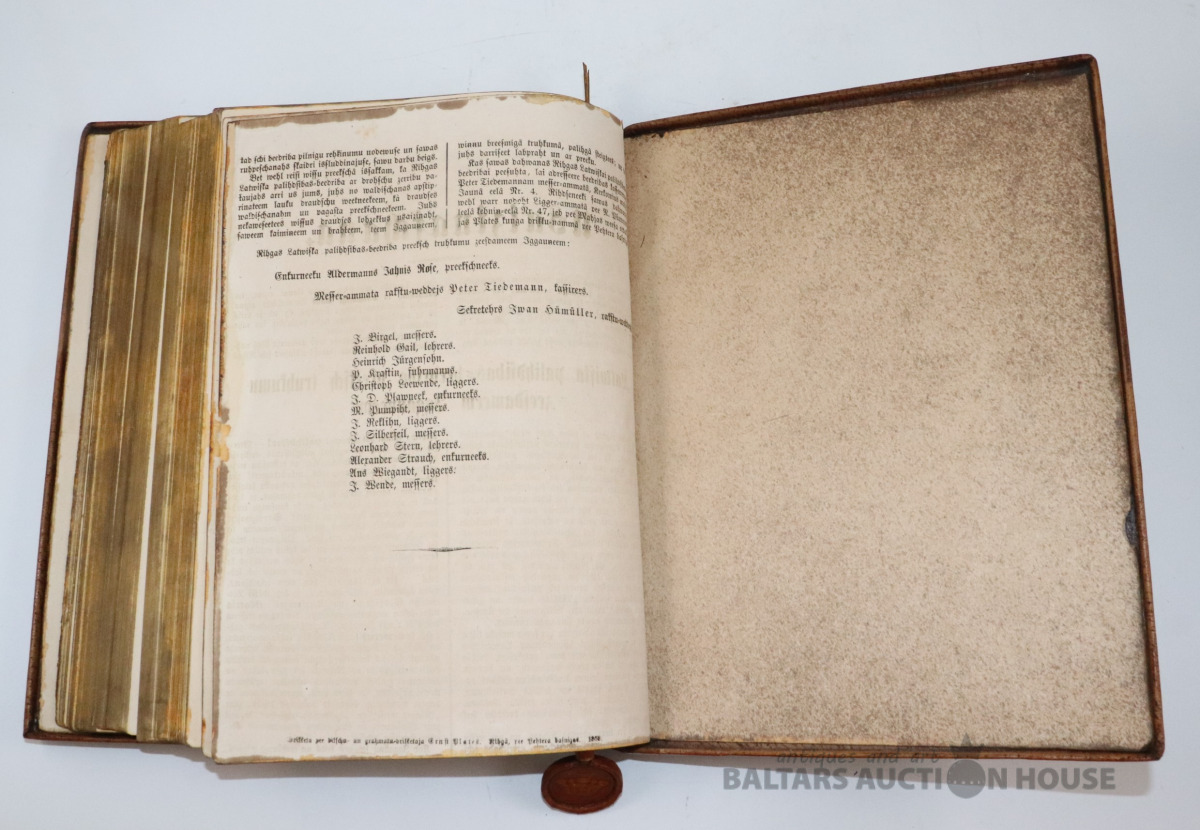 tad schi beedriba pilnigu rehkinumu nodewuse un sawas
ruhpeschanahs skaidri issluddinajuse, sawu darbu beigs.
Bet wehl reisi wissu preekschâ issakkam, ka Rihgas
Latwiska palihdsibas-beedriba ar drohschu zerribu pa-
ļaujahs arri us jums, juhs no waldischanas apstip-
rinateem lauku draudschu weetneekeem, ka draudses
waldischanahm un pagasta preekschneekeem. Juhs
nekaweseeters wissus draudses lohzekļus usaizinaht,
saweem kaimineem un brahleem, teem Iggauņeem,
winnu breesmigâ truhkumâ, palihgâ steigtees, un
juhs darriseet labpraht un ar preeku.
Kas sawas dahwanas Rihgas Latwiskai palihdsibas
beedribai peesuhta, lai adressere beedribas
Peter Tiedemannam messer-ammatâ, Kreewu
Jaunâ eelâ Nr. 4. Rihdseneeki sawas
wehl warr nodoht Ligger-ammatâ per R.
leelâ kehniņ-eelâ Nr. 47, jeb pee
jas Plates kunga drikku-nammâ per Pehtera
Rihgas Latwiska palihdsibas-beedriba preeksch truhkumu zeesdameem Iggauņeem:
Enkurneeku Aldermanns Jahnis Rose, preekschneeks.
Messer-ammata rakstu-weddejs Peter Tiedemann, kassirers.
Sekretehrs Iwan Hümüller, rakstu-
J. Birgel, messers.
Reinhold Gail, lehrers.
Heinrich Jürgensohn.
P. Krastin, fuhrmanns.
Christoph Loewende, liggers.
J. D. Plawneek, enkurneeks.
M. Pumpiht, messers.
J. Reklihn, liggers.
J. Silberfeil, messers.
Leonhard Stern, lehrers.
Alexander Strauch, enkurneeks.
Ans Wiegandt, liggers.
J. Wende, messers.
Drikkets per bilschu- un grahmatu-drikketaja Ernst Plates. Rihgâ, per Pehtera basnizas.
antiques and art
BALTARS AUCTION HOUSE